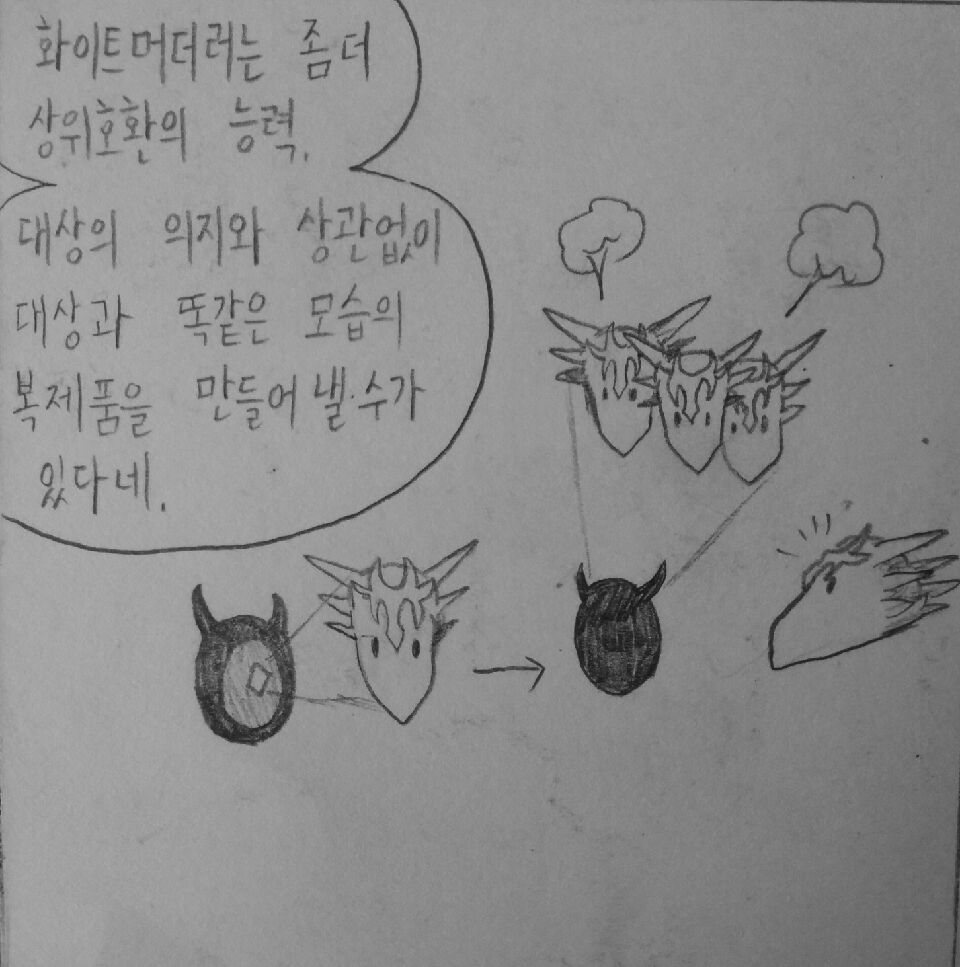 화이트머더러는 좀더
상위호환의 능력.
대상의 의지와 상관없이
대상과 똑같은 모습의
복제품을 만들어 낼 수가
있다네.